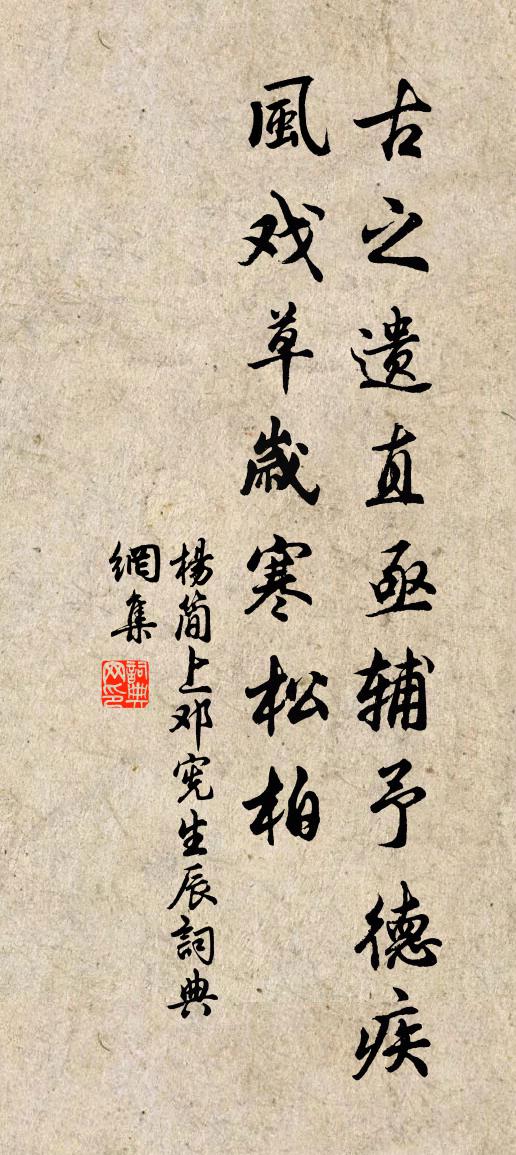 古之遗直亟辅予德疾
風戏草歲寒松柏
楊简上邓宪生辰詞典
網集
詞典
网印